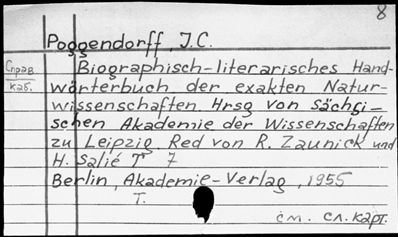 8
Poggendorff, J.C.
Справ. каб.
Biographisch-literarisches Hand-
wörterbuch der exakten Natur-
wissenschaften. Hrsg von Sächsi-
schen Akademie der Wissenschaften
zu Leipzig. Red von R. Zaunick und
H. Salié T 7
Berlin, Akademie-Verlag, 1955
T.
см. сл. карт.